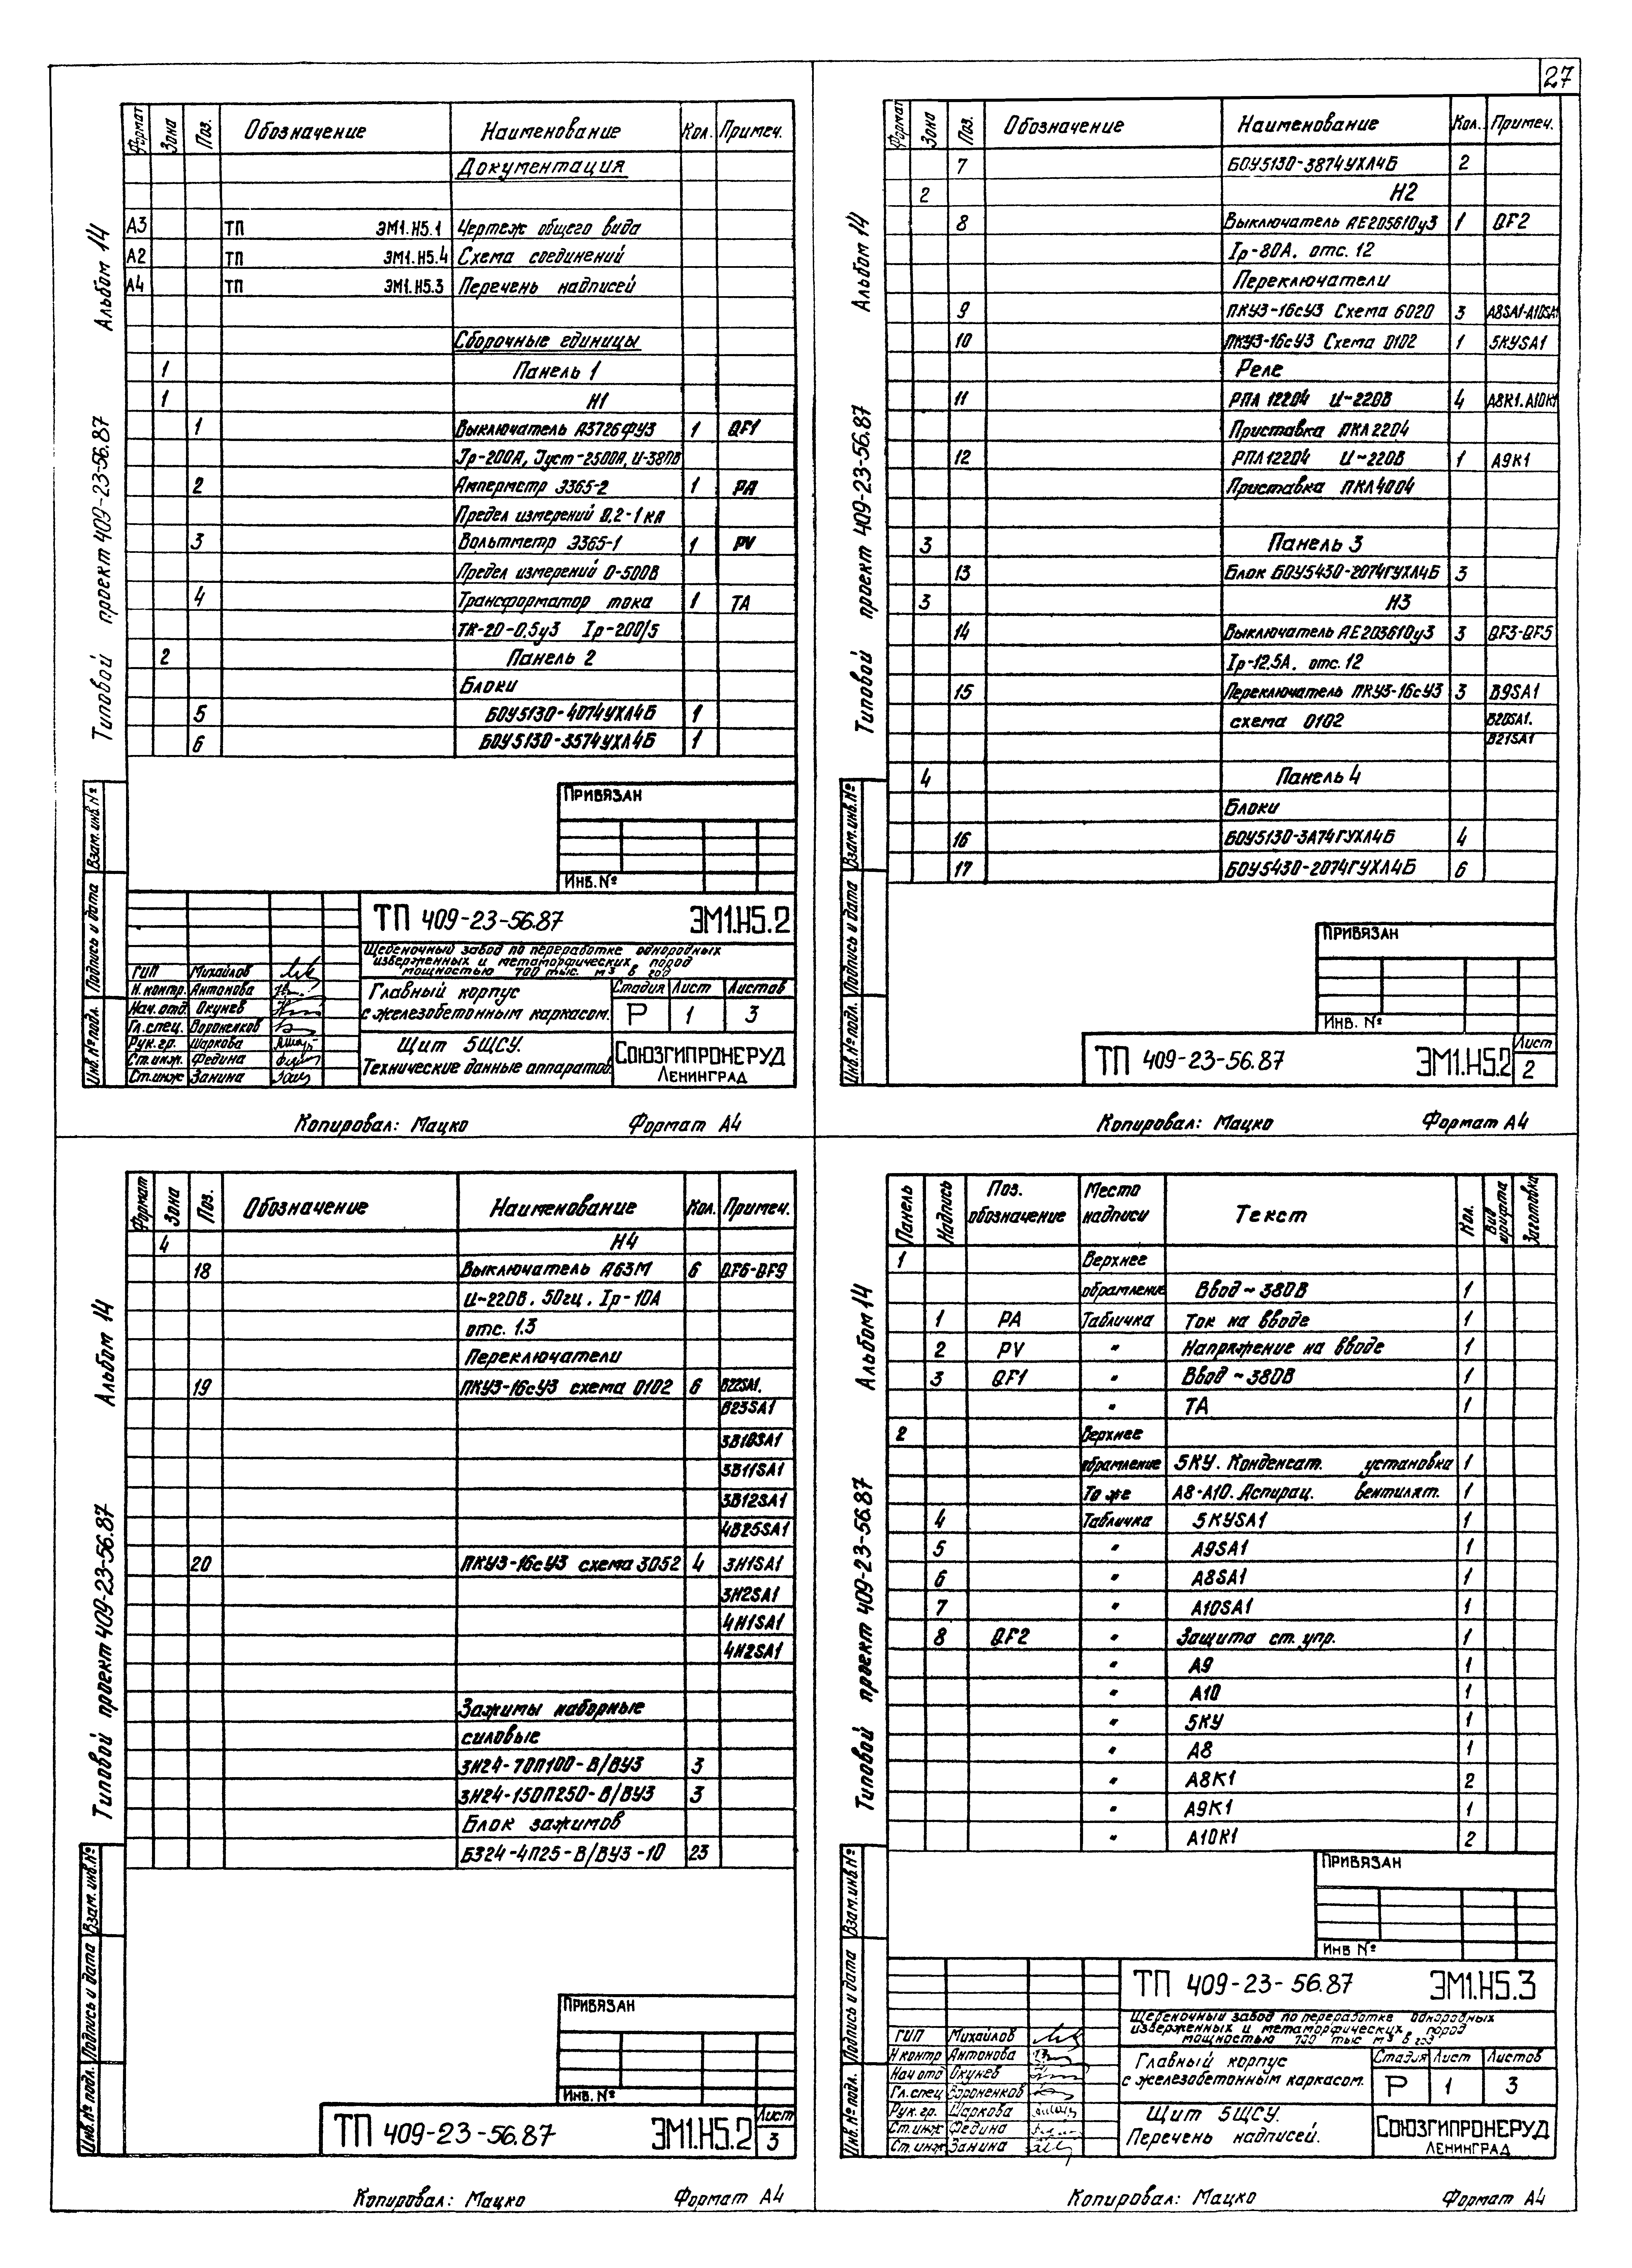 27
Формат Зона Поз. Обозначение Наименование Кол. Примеч.
Документация
А3 ТП ЭМ1.Н5.1 Чертеж общего вида
А2 ТП ЭМ1.Н5.4 Схема соединений
А4 ТП ЭМ1.Н5.3 Перечень надписей
Сборочные единицы
1 Панель 1
1 Н1
1 Выключатель А3726ФУ3 1 QF1
Iр-200А, Iуст-2500А, U-380В
2 Амперметр Э365-2 1 РА
Предел измерений 0,2-1 кА
3 Вольтметр Э365-1 1 PV
Предел измерений 0-500В
4 Трансформатор тока 1 ТА
ТК-20-0,5у3 Iр-200/5
2 Панель 2
Блоки
5 БОУ5130-4074УХЛ4Б 1
6 БОУ5130-3574УХЛ4Б 1
Альбом 14
Типовой проект 409-23-56.87
Взам. инв. №
Подпись и дата
Инв. № подл.
Привязан
Инв. №
ТП 409-23-56.87 ЭМ1.Н5.2
Щебеночный завод по переработке однородных
изверженных и метаморфических пород
мощностью 700 тыс. м3 в год
ГИП Михайлов
Н.контр. Антонова
Нач.отд. Окунев
Гл.спец. Вороненков
Рук.гр. Шаркова
Ст.инж. Федина
Ст.инж Занина
Главный корпус
с железобетонным каркасом.
Стадия Лист Листов
Р 1 3
Щит 5ЩСУ.
Технические данные аппаратов.
Союзгипронеруд
Ленинград
Копировал: Мацко Формат А4
Формат Зона Поз. Обозначение Наименование Кол. Примеч.
7 БОУ5130-3874УХЛ4Б 2
2 Н2
8 Выключатель АЕ205610у3 1 QF2
Iр-80А. отс. 12
Переключатели
9 ПКУ3-16сУ3 Схема 6020 3 А8SA1-А10SA1
10 ПКУ3-16сУ3 Схема 0102 1 5КУSA1
Реле
11 РПЛ 12204 U~220В 4 А8К1. А10К1
Приставка ПКЛ2204
12 РПЛ12204 U~220В 1 А9К1
Приставка ПКЛ4004
3 Панель 3
13 Блок БОУ5430-2074ГУХЛ4Б 3
3 Н3
14 Выключатель АЕ203610у3 3 QF3-QF5
Iр-12.5А. отс. 12
15 Переключатель ПКУ3-16сУ3 3 В9SA1
схема 0102 В20SA1.
В21SA1
4 Панель 4
Блоки
16 БОУ5130-3А74ГУХЛ4Б 4
17 БОУ5430-2074ГУХЛ4Б 6
Альбом 14
Типовой проект 409-23-56.87
Взам. инв. №
Подпись и дата
Инв. № подл.
Привязан
Инв. №
ТП 409-23-56.87 ЭМ1.Н5.2
Лист
2
Копировал: Мацко Формат А4
Формат Зона Поз. Обозначение Наименование Кол. Примеч.
4 Н4
18 Выключатель А63М 6 QF6-QF9
U~220В. 50гц. Iр-10А
отс. 1.3
Переключатели
19 ПКУ3-16сУ3 схема 0102 6 В22SA1.
В23SA1
3В10SA1
3В11SA1
3В12SA1
4В25SA1
20 ПКУ3-16сУ3 схема 3052 4 3Н1SA1
3Н2SA1
4Н1SA1
4Н2SA1
Зажимы наборные
силовые
ЗН24-70П100-В/ВУ3 3
ЗН24-150П250-В/ВУ3 3
Блок зажимов
БЗ24-4П25-В/ВУ3-10 23
Альбом 14
Типовой проект 409-23-56.87
Взам. инв. №
Подпись и дата
Инв. № подл.
Привязан
Инв. №
ТП 409-23-56.87 ЭМ1.Н5.2
Лист
3
Копировал: Мацко Формат А4
Панель Надпись Поз. обозначение Место надписи Текст Кол. Вид шрифта Заготовка
1 Верхнее
обрамление Ввод ~ 380В 1
1 РА Табличка Ток на вводе 1
2 PV " Напряжение на вводе 1
3 QF1 " Ввод ~380В 1
" ТА 1
2 Верхнее
обрамление 5КУ. Конденсат. установка 1
То же А8-А10. Аспирац. вентилят. 1
4 Табличка 5КУSA1 1
5 " А9SA1 1
6 " А8SA1 1
7 " А10SA1 1
8 QF2 " Защита ст. упр. 1
" А9 1
" А10 1
" 5КУ 1
" А8 1
" А8К1 2
" А9К1 1
" А10К1 2
Альбом 14
Типовой проект 409-23-56.87
Взам. инв. №
Подпись и дата
Инв. № подл.
Привязан
Инв №
ТП 409-23-56.87 ЭМ1.Н5.3
Щебеночный завод по переработке однородных
изверженных и метаморфических пород
мощностью 700 тыс м3 в год
ГИП Михайлов
Н контр Антонова
Нач отд Окунев
Гл.спец Вороненков
Рук.гр. Шаркова
Ст.инж Федина
Ст.инж Занина
Главный корпус
с железобетонным каркасом.
Стадия Лист Листов
Р 1 3
Щит 5ЩСУ.
Перечень надписей.
Союзгипронеруд
Ленинград
Копировал: Мацко Формат А4